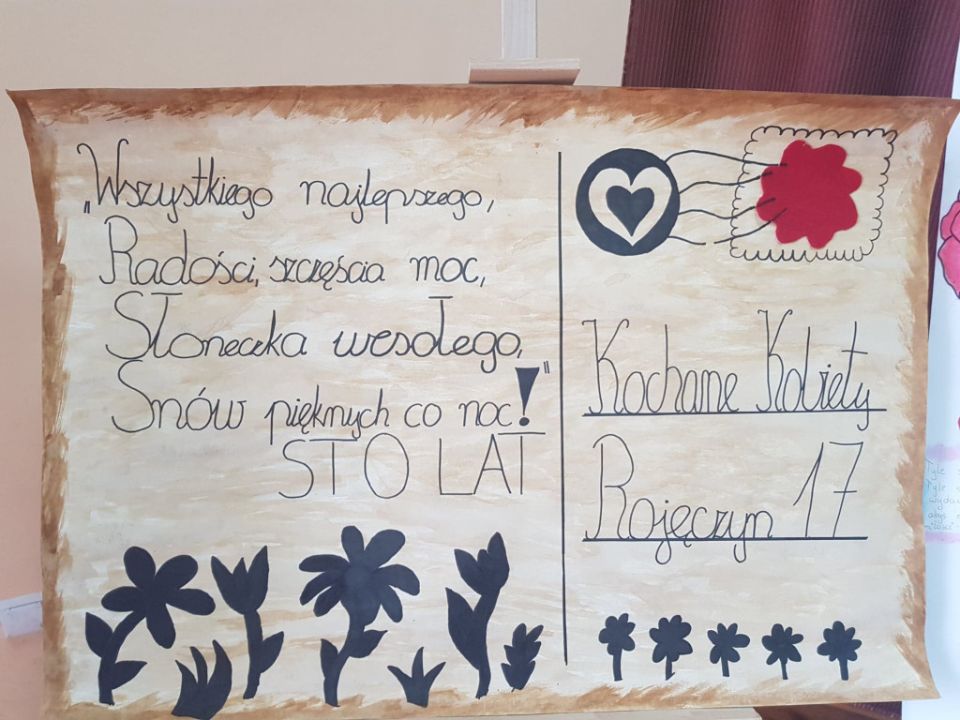 „Wszystkiego najlepszego,
Radości, szczęścia moc,
Słoneczka wesołego,
Snów pięknych co noc!"
STO LAT
Kochane Kobiety
Rojęczyn 17
Tyle
Tyle